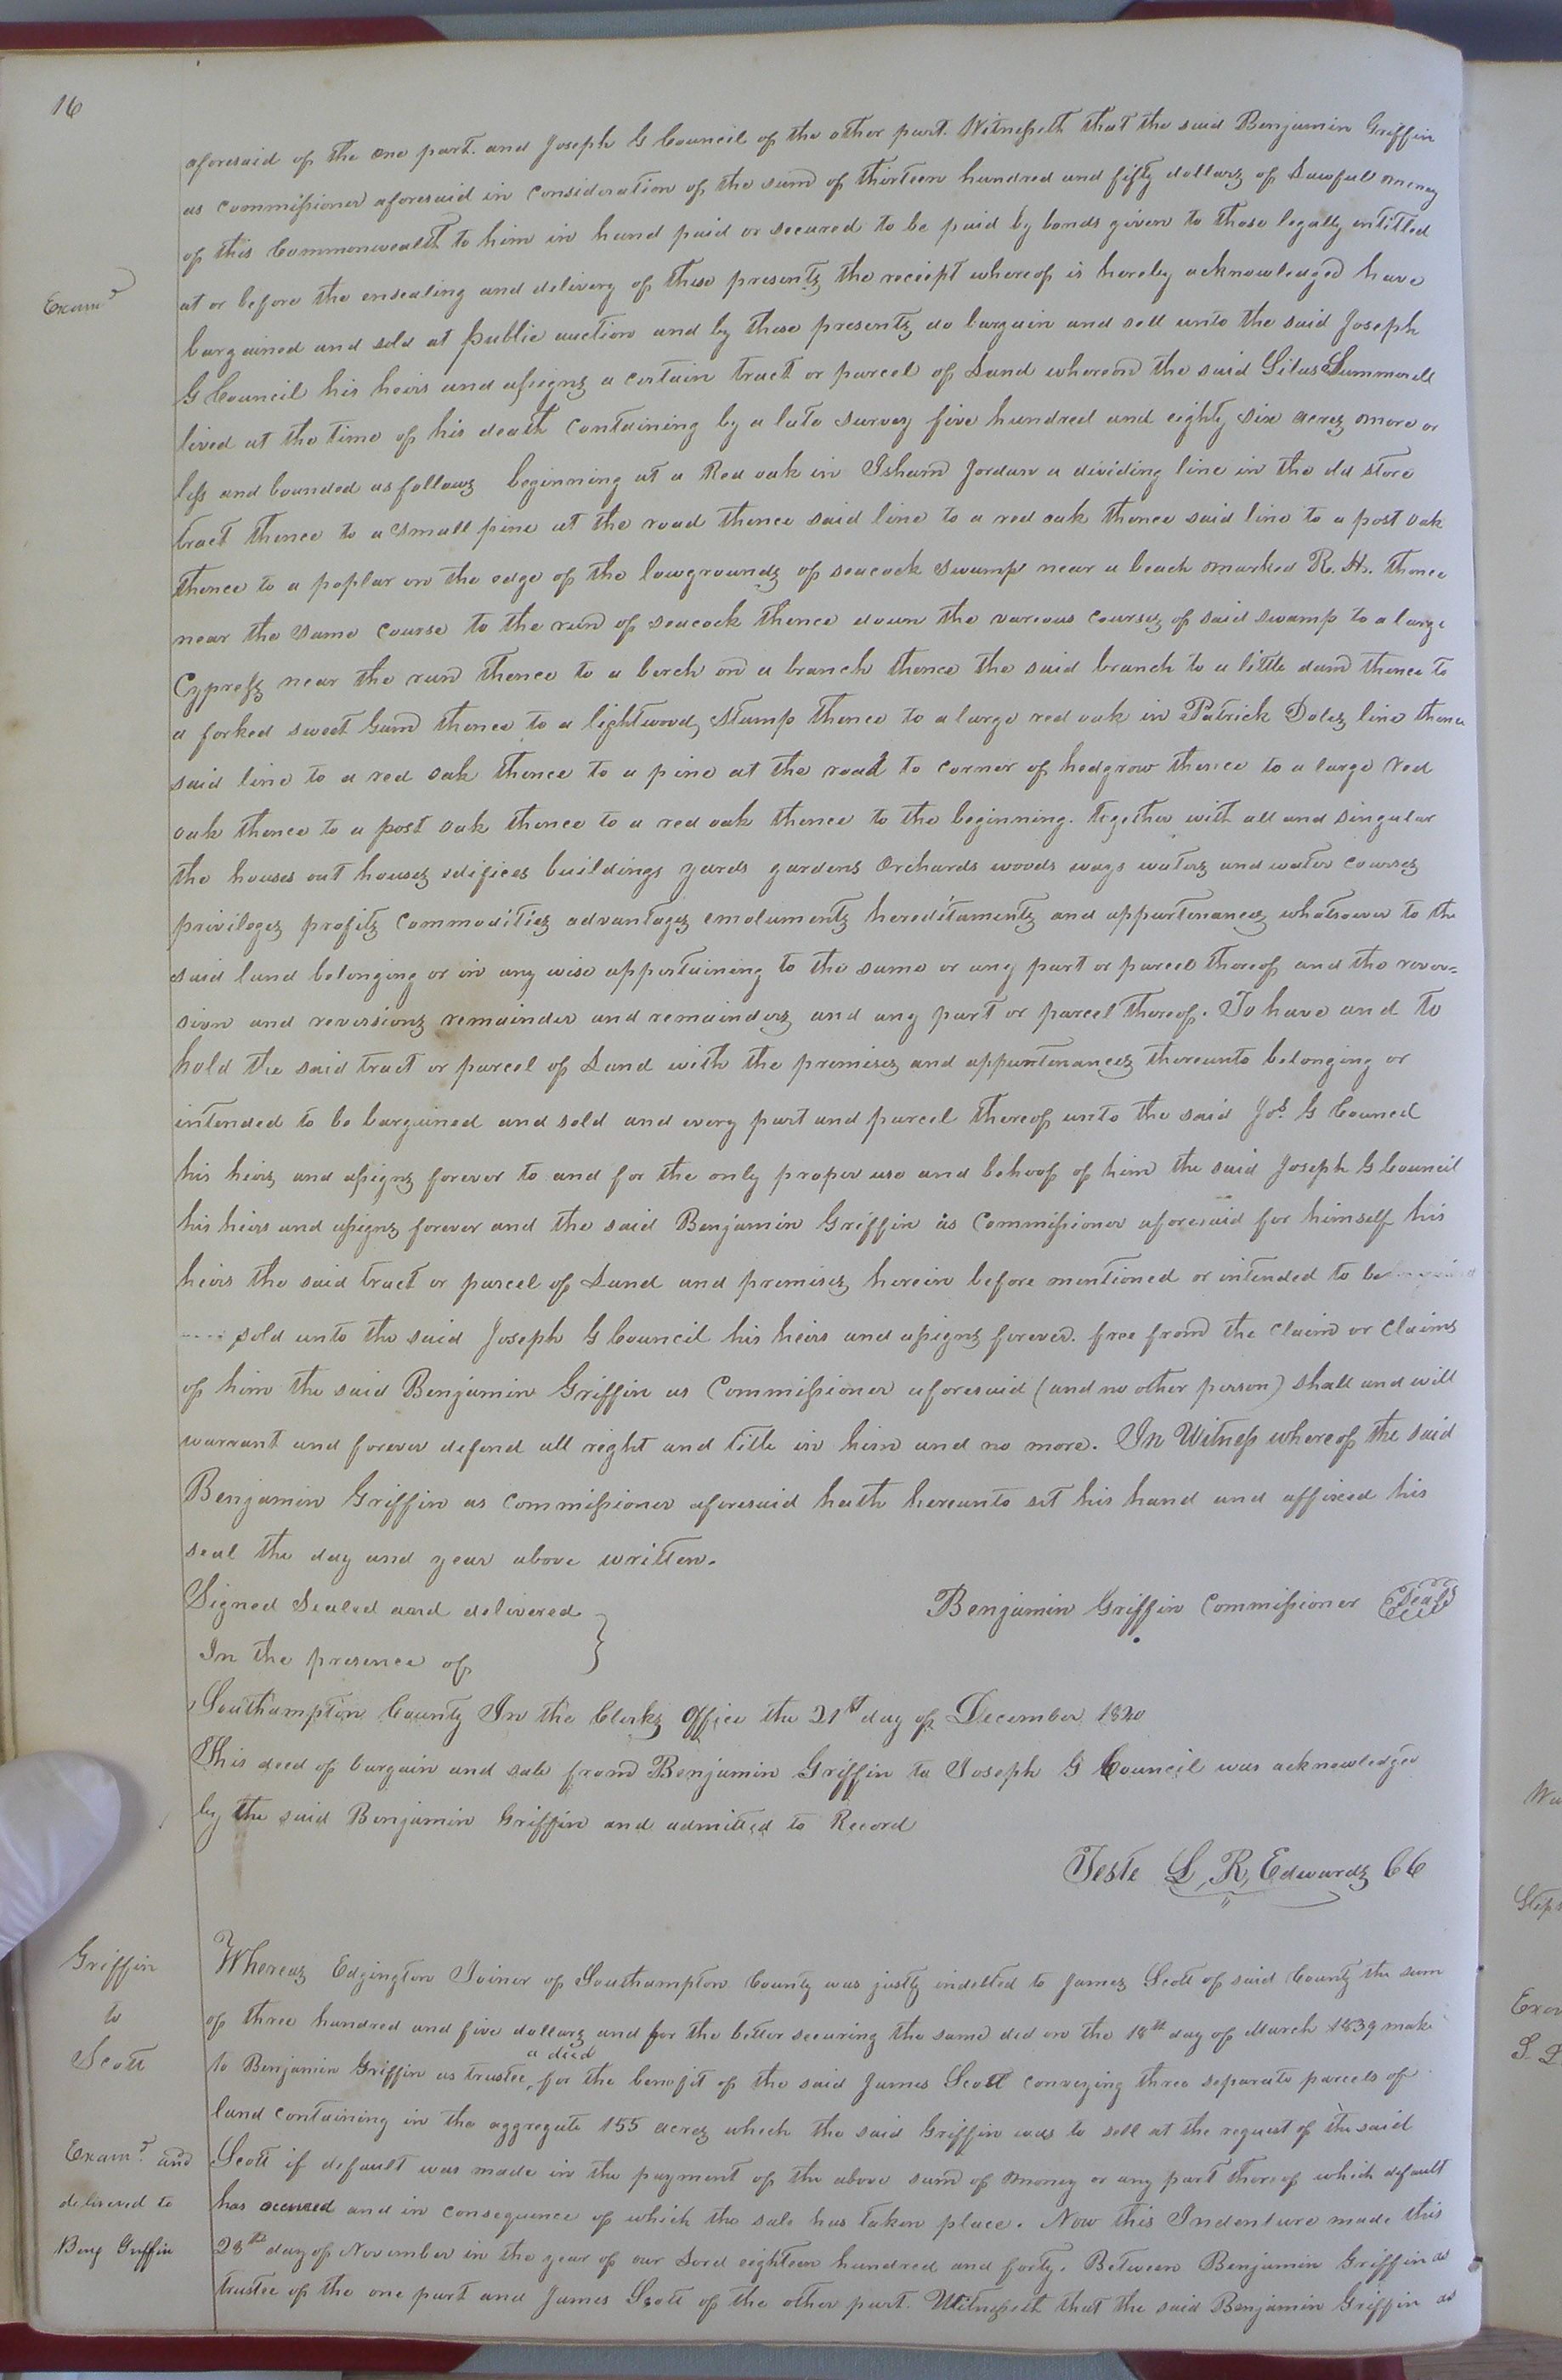 16
aforesaid of the one part. and Joseph G Council of the other part. Witnesseth that the said Benjamin Griffin
as commissioner aforesaid in consideration of the sum of thirteen hundred and fifty dollars of Lawful money
of this Commonwealth to him in hand paid or secured to be paid by bonds given to those legally intitled
at or before the ensealing and delivery of these presents the reciept whereof is hereby acknowledged have
Exam^d
bargained and sold at public auction and by these presents do bargain and sell unto the said Joseph
G Council his heirs and assigns a certain tract or parcel of Land whereon the said Silas Summerell
lived at the time of his death containing by a late survey five hundred and eighty six acres more or
less and bounded as follows beginning at a Red oak in Isham Jordan a dividing line in the old store
tract thence to a small pine at the road thence said line to a red oak thence said line to a post oak
thence to a poplar on the edge of the lowgrounds of seacock swamp near a beach marked R. H. thence
near the same course to the run of seacock thence down the various courses of said swamp to a large
Cypress near the run thence to a berch on a branch thence the said branch to a little dam thence to
a forked sweet Gum thence to a lightwood stump thence to a large red oak in Patrick Doles line thence
said line to a red oak thence to a pine at the road to corner of hedgrow thence to a large red
oak thence to a post oak thence to a red oak thence to the beginning. together with all and singular
the houses out houses edifices buildings yards gardens orchards woods ways waters and water courses
privileges profits commodities advantages emoluments hereditaments and appurtenances whatsoever to the
said land belonging or in any wise appertaining to the same or any part or parcel thereof and the rever=
sion and reversions remainder and remainders and any part or parcel thereof. To have and to
hold the said tract or parcel of Land with the premises and appurtenances thereunto belonging or
intended to be bargained and sold and every part and parcel thereof unto the said Jos. G Council
his heirs and assigns forever to and for the only proper use and behoof of him the said Joseph G Council
his heirs and assigns forever and the said Benjamin Griffin as Commissioner aforesaid for himself his
heirs the said tract or parcel of Land and premises herein before mentioned or intended to be
sold unto the said Joseph G Council his heirs and assigns forever. free from the claim or claims
of him the said Benjamin Griffin as Commissioner aforesaid (and no other person) shall and will
warrant and forever defend all right and title in him and no more. In Witness whereof the said
Benjamin Griffin as commissioner aforesaid hath hereunto set his hand and affixed his
seal the day and year above written.
Signed Sealed and delivered }
Benjamin Griffin Commissioner Seal
In the presence of
Southampton County In the Clerks Office the 21st day of December 1840
This deed of bargain and sale from Benjamin Griffin to Joseph G Council was acknowledged
by the said Benjamin Griffin and admitted to Record
Teste L. R, Edwards CC
Griffin
to
Scott
Whereas Edgington Joiner of Southampton County was justly indebted to James Scott of said County the sum
of three hundred and five dollars and for the better securing the same did on the 18th day of March 1839 make
to Benjamin Griffin as trustee a deed for the benefit of the said James Scott conveying three separate parcels of
land containing in the aggregate 155 acres which the said Griffin was to sell at the request of the said
Exam^d and
delivered to
Benj Griffin
Scott if default was made in the payment of the above sum of money or any part thereof which default
has occurred and in consequence of which the sale has taken place. Now this Indenture made this
28th day of November in the year of our Lord eighteen hundred and forty. Between Benjamin Griffin as
trustee of the one part and James Scott of the other part. Witnesseth that the said Benjamin Griffin as